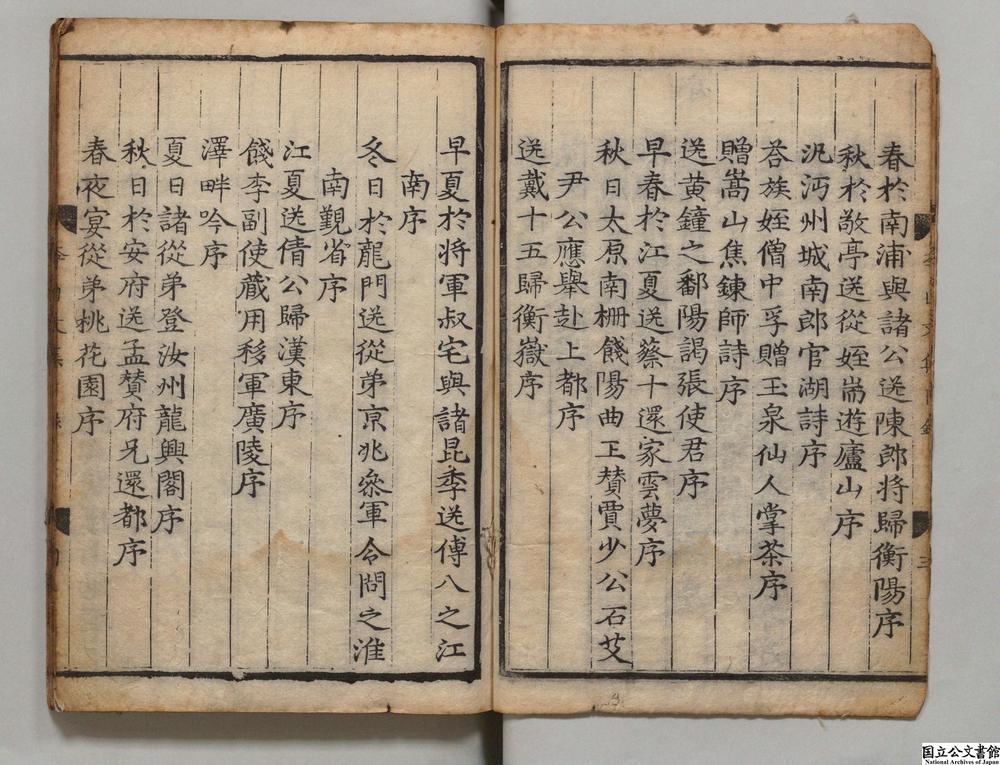 春於南浦與諸公送陳郎將歸衡陽序
秋於敬亭送從姪耑遊廬山序
汎沔州城南郎官湖詩序
答族姪僧中孚贈玉泉仙人掌茶序
贈嵩山焦鍊師詩序
送黃鐘之鄱陽謁張使君序
早春於江夏送蔡十還家雲夢序
秋日太原南柵餞陽曲王贊賈少公石艾
尹公應舉赴上都序
送戴十五歸衡嶽序
早夏於將軍叔宅與諸昆季送傅八之江
南序
冬日於龍門送從弟京兆叅軍令問之淮
南覲省序
江夏送倩公歸漢東序
餞李副使藏用移軍廣陵序
澤畔吟序
夏日諸從弟登汝州龍興閣序
秋日於安府送孟贊府兄還都序
春夜宴從弟桃花園序
国立公文書館
National Archives of Japan